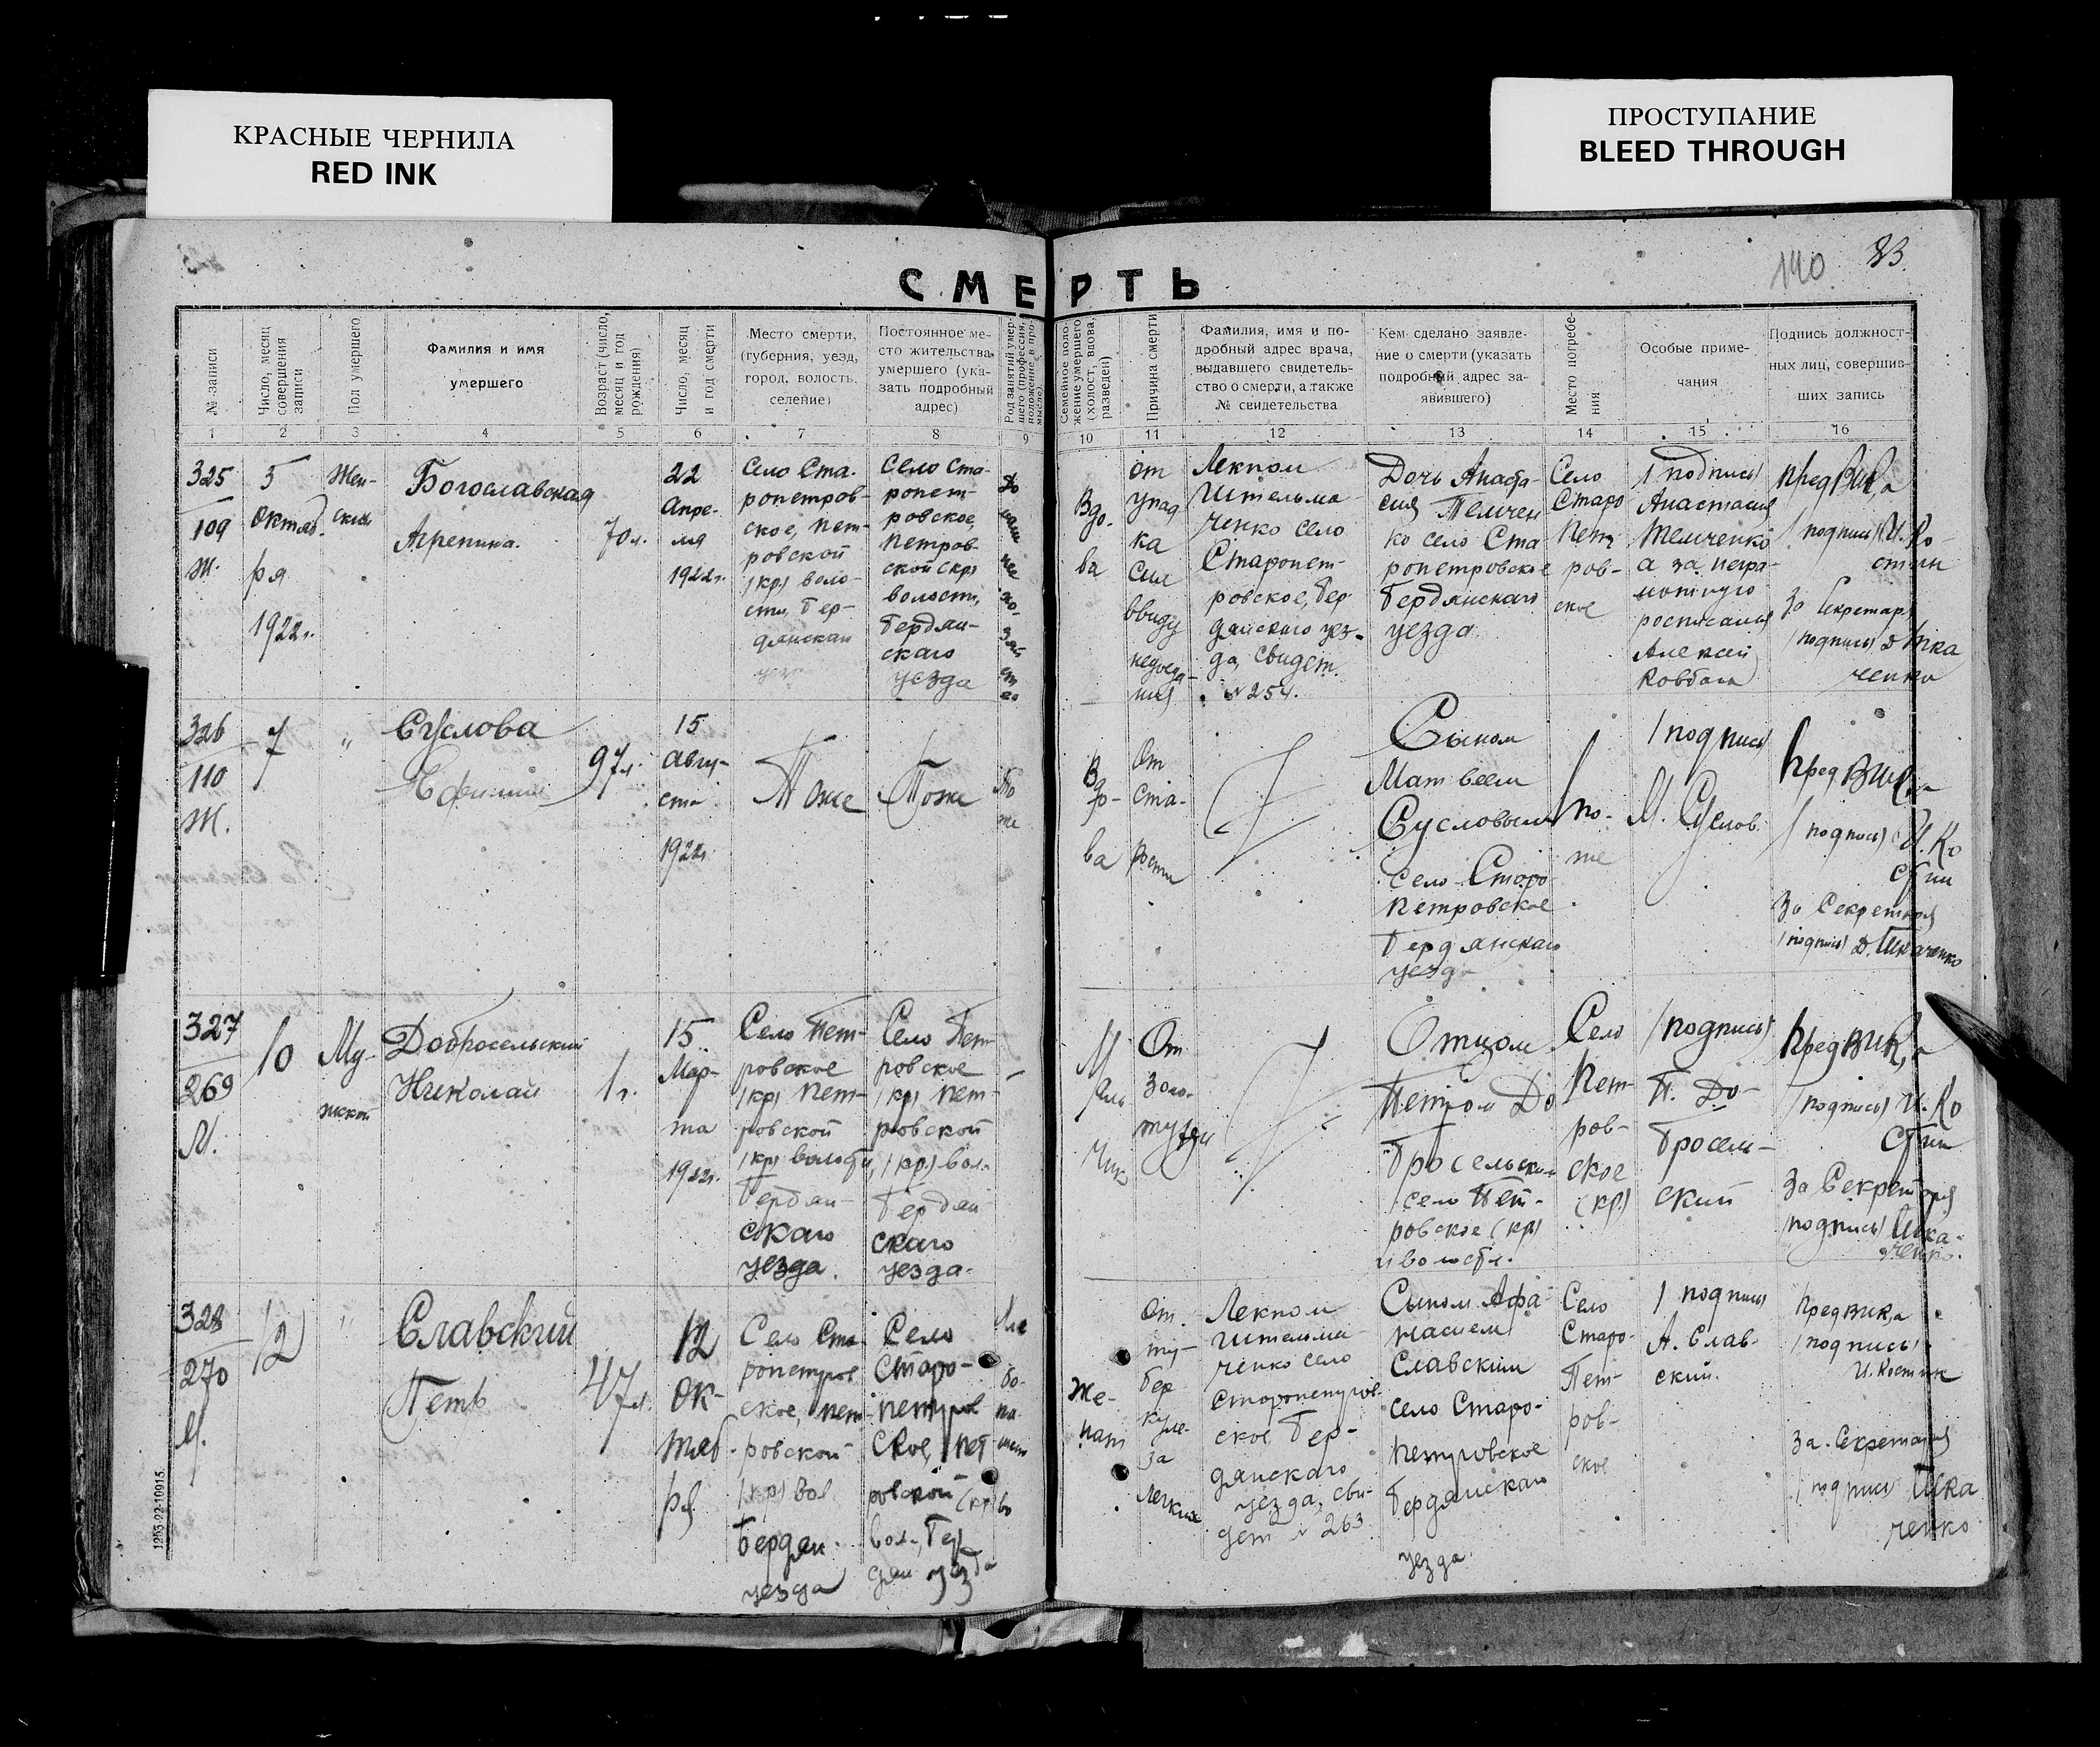 КРАСНЫЕ ЧЕРНИЛА
RED INK
ПРОСТУПАНИЕ
BLEED THROUGH
140 83.
СМЕРТЬ
№ записи
Число, месяц совершения записи
Пол умершего
Фамилия и имя
умершего
Возраст (число, месяц и год рождения)
Число, месяц и год смерти
Место смерти,
(губерния, уезд,
город, волость,
селение)
Постоянное ме-
сто жительства
умершего (ука-
зать подробный
адрес)
Род занятий умер-
шего (профессия,
положение в про-
мысле).
Семейное поло-
жение умершего
(холост, вдова,
разведен)
Причина смерти
Фамилия, имя и по-
дробный адрес врача,
выдавшего свидетель-
ство о смерти, а также
№ свидетельства
Кем сделано заявле-
ние о смерти (указать
подробный адрес за-
явившего)
Место погребе-
ния
Особые приме-
чания
Подпись должност-
ных лиц, совершив-
ших запись
1 2 3 4 5 6 7 8 9 10 11 12 13 14 15 16
325
109
Ж.
5
Октяб.
ря
1922г.
Жен-
ский
Богославская
Агрепина.
70л.
22
Апре-
ля
1922г.
Село Ста-
ропетров-
ское, Пет-
ровской
(кр) воло-
сти, Бер-
дянскаи
уез
Село Ста-
ропет-
ровское,
Петров-
ской (кр)
волости,
Бердян-
скаго
уезда
До
маш
нее
хо-
зяй
ст
во
Вдо-
ва
от
упад
ка
сил
ввиду
недоеда-
ния
Лекпом
Шительма-
ченко село
Старопет-
ровское, Бер
дянскаго уез-
да, свидет.
№ 254.
Дочь Анаста-
сия Телчен
ко село Ста
ропетровское
Бердянскаго
уезда
Село
Старо
Петр
ров-
ское
(подпись)
Анастасия
Телченко
а за негра-
мотную
росписался
Алексей
Ковбаса
предВик,а
(подпись) И. Ко-
стин
За Секретаря
(подпись) Д Шка
ченко
326
110
Ж.
7
"
Суслова
97л.
15
Авгу-
ста
1922г.
Тоже
Тоже
То
же
Вдо-
ва
От
ста-
рости
Сыном
Матвеем
Сусловым
село Старо
Петровское
Бердянскаго
уезда
То-
же
(подпись)
М. Суслов.
предВИК,а
(подпись) И. Ко
стин
За Секретаря
(подпись) Д. Шкаченко
327
269
М.
10
Му-
жской
Добросельский
Николай
1г.
15
Мар-
та
1922г.
Село Пет-
ровское
(кр) Пет-
ровской
(кр) волости,
Бердян-
скаго
уезда.
Село Пет-
ровское
(кр) Пет-
ровской
(кр.) вол.
Бердян
скаго
уезда.
-
М
аль
чик
От
золо-
тухи
Отцом
Петром До
бросельским
село Пет-
ровское (кр)
и волости.
Село
Пет-
ров-
ское
(кр.)
(подпись)
П. До-
бросель-
ский
предВИК,а
(подпись) И. Ко
стин
За Секретаря
(подпись) Шка-
ченко.
328
270
М.
12
"
Славский
Петр
47л.
12
Ок-
тяб-
ря
Село Ста-
ропетров
ское, Пет-
ровской
(кр) вол
Бердян.
уезда
Село
Старо-
петров
ское, Пет-
ровской (кр)
вол., Бер
дян уезда
Хле
бо-
па-
шест
во
Же-
нат
От.
ту-
бер
куле-
за
легких
Лекпом
Шительма-
ченко село
Старопетров-
ское, Бер-
дянскаго
уезда, сви-
дет № 263
Сыном Афа
насием
Славским
село Старо-
Петровское
Бердянскаго
уезда.
Село
Старо-
Пет-
ров-
ское
(подпись)
А. Слав-
ский.
ПредВИК,а
(подпись)
И. Костин
За. Секретаря
(подпись) Шка
ченко
1253-22-10915.